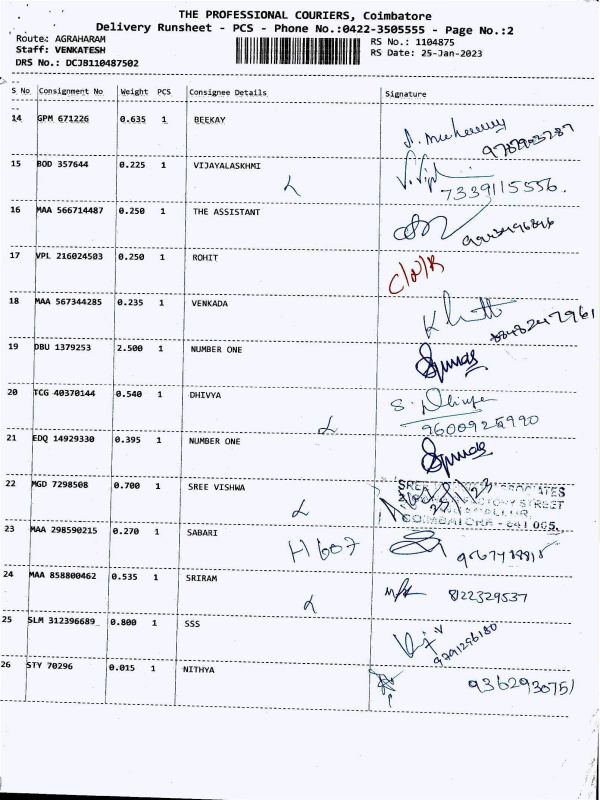 THE PROFESSIONAL COURIERS, Coimbatore
Delivery Runsheet - PCS - Phone No.:0422-3505555 - Page No.:2
Route: AGRAHARAM RS No.: 1104875
Staff: VENKATESH RS Date: 25-Jan-2023
DRS No.: DCJB110487502
S No Consignment No Weight PCS Consignee Details Signature
14 GPM 671226 0.635 1 BEEKAY
15 BOD 357644 0.225 1 VIJAYALASKHMI
7339115556.
16 MAA 566714487 0.250 1 THE ASSISTANT
17 VPL 216024503 0.250 1 ROHIT
18 MAA 567344285 0.235 1 VENKADA
19 DBU 1379253 2.500 1 NUMBER ONE
20 TCG 40370144 0.540 1 DHIVYA
21 EDQ 14929330 0.395 1 NUMBER ONE
22 MGD 7298508 0.700 1 SREE VISHWA
COIMBATORE - 641 005.
23 MAA 298590215 0.270 1 SABARI H607
24 MAA 858800462 0.535 1 SRIRAM
8122329537
25 SLM 312396689 0.800 1 SSS
9791296180
26 STY 70296 0.015 1 NITHYA
9362930751